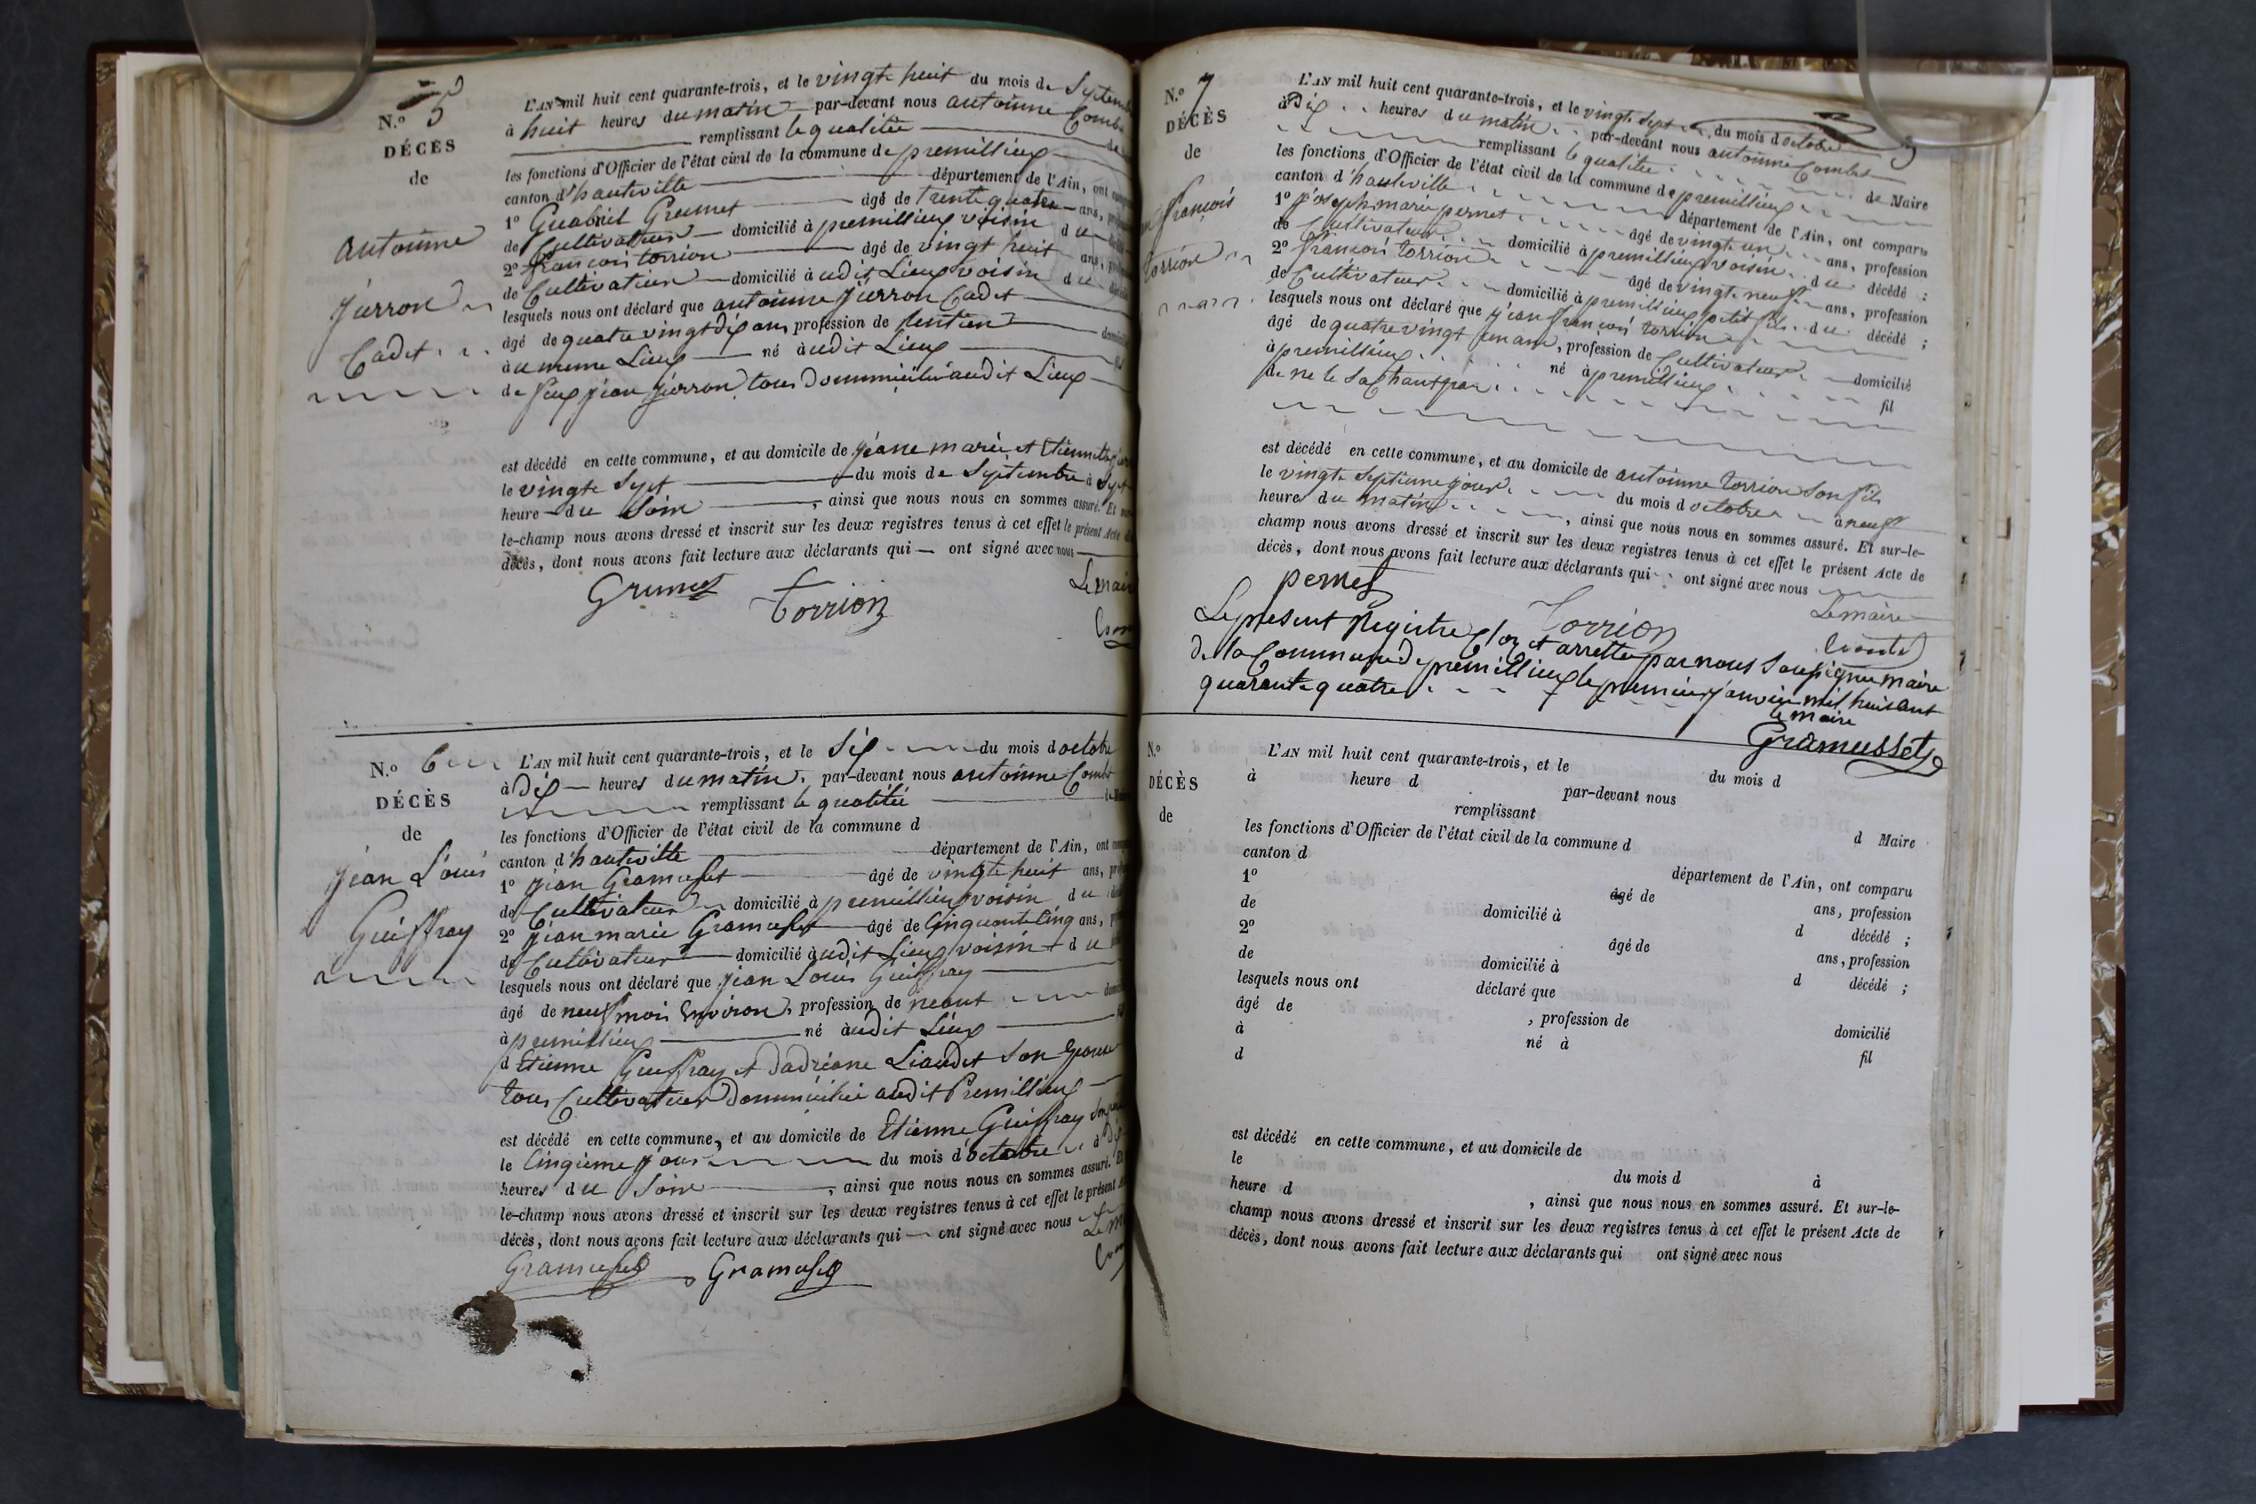 N.o 5
DÉCÈS
de
antoinne
jierron
Cadet
L'AN mil huit cent quarante-trois, et le vingt huit du mois de Septemb
à huit heures du matin par-devant nous antoinne Combe
remplissant la qualitée de
les fonctions d'Officier de l'état civil de la commune de premillieux
canton d'hauteville département de l'Ain, ont
1o Guabriel Grumet âgé de trente quatre ans,
de Cultivateur domicilié à premillieux voisin du
2o françois torrion âgé de vingt huit ans,
de Cultivateur domicilié à udit Lieux voisin du
lesquels nous ont déclaré que antoinne jierron Cadet
âgé de quatre vingt dix ans, profession de Rentier
à u meme Lieux né à udit Lieux
de feux jean jierron tous dommicilié audit Lieux
est décédé en cette commune, et au domicile de jeane marie et Etiennette
le vingte Sept du mois de Septembre à Sept
heure du Soire, ainsi que nous nous en sommes assuré. Et
le-champ nous avons dressé et inscrit sur les deux registres tenus à cet effet le présent Acte de
décès, dont nous avons fait lecture aux déclarants qui ont signé avec nous
Le mair
Grumet Torrion
N.o 6
DÉCÈS
de
jean Louis
Guiffray
L'AN mil huit cent quarante-trois, et le Six du mois d octobre
à Dix heures du matin, par-devant nous antoinne Combe
remplissant la qualitée
les fonctions d'Officier de l'état civil de la commune d
canton d'hauteville département de l'Ain, ont
1o jean Gramuset âgé de vingte huit ans,
de Cultivateur domicilié à premillieux voisin du
2o jean marie Gramuset âgé de Cinquante Cinq ans,
de Cultivateur domicilié à udit Lieux voisin du
lesquels nous ont déclaré que jean Louis Guiffray
âgé de neuf moi Environ, profession de neant
à premillieux né à udit Lieux
d Etienne Guiffray et dadriane Liaudet Son Epouse
tous Cultivateur Dommicilié audit Premillieux
est décédé en cette commune, et au domicile de Etienne Guiffray Son
le Cinqieme jour du mois d'octobre à Dix
heures du Soire, ainsi que nous nous en sommes assuré. Et
le-champ nous avons dressé et inscrit sur les deux registres tenus à cet effet le présent
décès, dont nous avons fait lecture aux déclarants qui ont signé avec nous
Le m
Gramuset Gramuset
N.o 7
DÉCÈS
de
françois
torrion
L'AN mil huit cent quarante-trois, et le vingte Sept du mois d octobre
à Dix heures du matin par-devant nous antoinne Combet
remplissant la qualitée de Maire
les fonctions d'Officier de l'état civil de la commune de premillieux
canton d'hauteville département de l'Ain, ont comparu
1o joseph marie pernet âgé de vingte un ans, profession
de Cultivateur domicilié à premillieux voisin du décédé ;
2o françois torrion âgé de vingte neuf ans, profession
de Cultivateur domicilié à premillieux petit fils du décédé ;
lesquels nous ont déclaré que jean françois torrion
âgé de quatre vingt un ans, profession de Cultivateur domicilié
à premillieux né à premillieux fil
de ne le Sachant pas
est décédé en cette commune, et au domicile de antoinne torrion Son fils
le vingte Septieme jour du mois d octobre à neuf
heure du matin, ainsi que nous nous en sommes assuré. Et sur-le-
champ nous avons dressé et inscrit sur les deux registres tenus à cet effet le présent Acte de
décès, dont nous avons fait lecture aux déclarants qui ont signé avec nous
Le maire
pernet Torrion Combet
Le present Registre Clos et arretté par nous Sousigné maire
de la Commune de premillieux le premier janvier mil huit cent
quarante quatre
le maire
Gramusset
N.o
DÉCÈS
de
L'AN mil huit cent quarante-trois, et le du mois d
à heure d par-devant nous
remplissant d Maire
les fonctions d'Officier de l'état civil de la commune d
canton d département de l'Ain, ont comparu
1o âgé de ans, profession
de domicilié à d décédé ;
2o âgé de ans, profession
de domicilié à d décédé ;
lesquels nous ont déclaré que
âgé de , profession de domicilié
à né à fil
d
est décédé en cette commune, et au domicile de
le du mois d à
heure d , ainsi que nous nous en sommes assuré. Et sur-le-
champ nous avons dressé et inscrit sur les deux registres tenus à cet effet le présent Acte de
décès, dont nous avons fait lecture aux déclarants qui ont signé avec nous